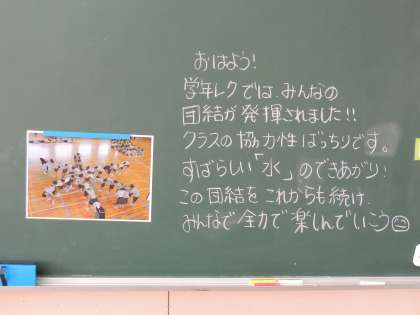 おはよう!
学年レクでは、みんなの
団結が発揮されました!!
クラスの協力性ばっちりです。
すばらしい「水」のできあがり!
この団結をこれからも続け、
みんなで全力で楽しんでいこう